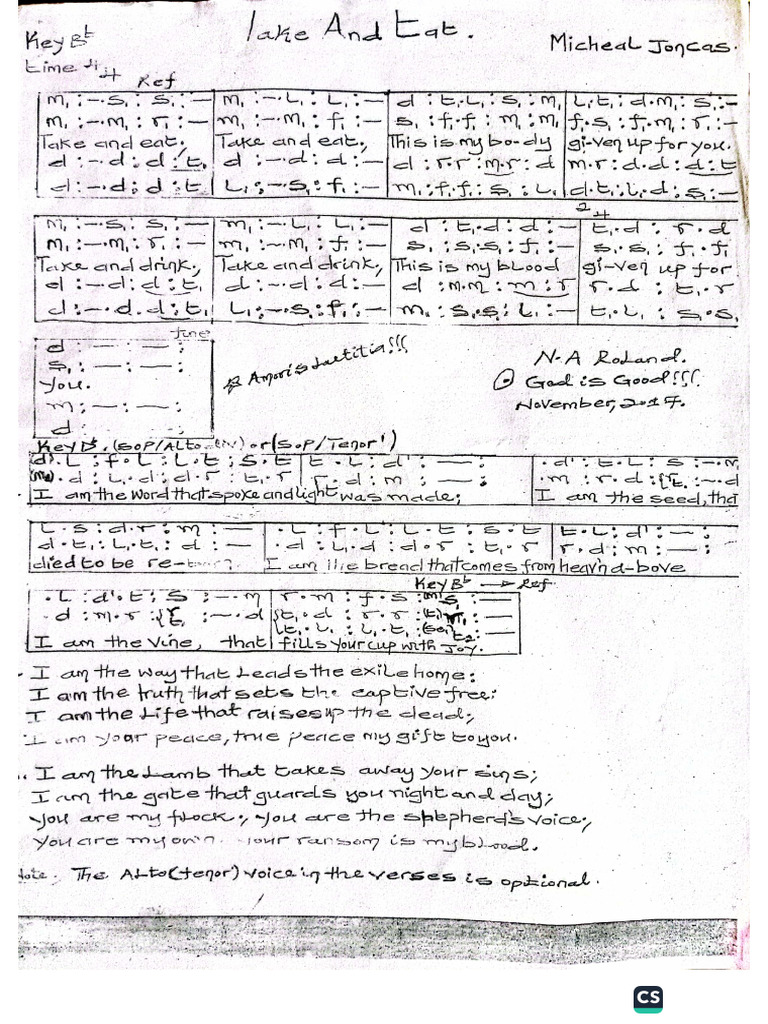 Take And Eat.
Key Bb
Micheal Joncas.
time 4/4
Ref
m₁ :–.s₁ : s₁ :– | m₁ :–.l₁ : l₁ :– | d : t₁.l₁ : s₁ : m₁ | l₁.t₁ : d.m₁ : s₁ :–
m₁ :–.m₁ : r₁ :– | m₁ :–.m₁ : f₁ :– | s₁ : f₁.f₁ : m₁ : m₁ | f₁.s₁ : f₁.m₁ : r₁ :–
Take and eat, Take and eat, This is my bo-dy gi-ven up for you.
d :–.d : d : t₁ | d :–.d : d :– | d : r.r : m.r : d | m.r : d.d : d : t
d :–.d : d : t₁ | l₁ :–.s₁ : f₁ :– | m₁ : f₁.f₁ : s₁ : l₁ | d.t₁ : l₁.d : s₁ :–
2/4
m₁ :–.s₁ : s₁ :– | m₁ :–.l₁ : l₁ :– | d : t₁.d : d :– | t₁.d : r.d
m₁ :–.m₁ : r₁ :– | m₁ :–.m₁ : f₁ :– | s₁ : s₁.s₁ : f₁ :– | s₁.s₁ : f₁.f₁
Take and drink, Take and drink, This is my blood gi-ven up for
d :–.d : d : t₁ | d :–.d : d :– | d : m.m : m : r | r.d : t₁.r
d :–.d : d : t₁ | l₁ :–.s₁ : f₁ :– | m₁ : s₁.s₁ : l₁ :– | t₁.l₁ : s₁.s₁
fine
d :– :– :– :
s₁ :– :– :– :
you.
m :– :– :
d :– :– :
Amoris Laetitia!!!
N-A Roland.
God is Good!!!
November, 2017.
Key Bb. (Sop/Alto) or (Sop/Tenor)
.l : f.l : l.t : s.t | t.l : d' :– :
.d : l₁.d : d.r : t₁.r | r.d : m :– :
I am the word that spoke and light was made; I am the seed, tha
.d' : t.l : s :–.m
.m : r.d : t₁ :–.d
l.s : d.r : m :– | .l : f.l : l.t : s.t | t.l : d' :– :
d.t₁ : l₁.t₁ : d :– | .d : l₁.d : d.r : t₁.r | r.d : m :– :
died to be re- I am the bread that comes from heav'n a-bove
Key Bb → Ref.
.l : d'.t : s :–.m | r.m : f.s : :–
.d : m.r : t₁ :–.d | t₁.d : r.r : :–
t₁.l₁ : l₁.t₁ : :–
I am the vine, that fills your cup with Joy.
I am the way that Leads the exile home;
I am the truth that sets the captive free;
I am the Life that raises up the dead;
I am your peace, true peace my gift to you.
I am the Lamb that takes away your sins;
I am the gate that guards you night and day;
You are my flock, you are the shepherd's voice;
You are my own. Your ransom is my blood.
Note. The Alto (tenor) voice in the verses is optional.
CS